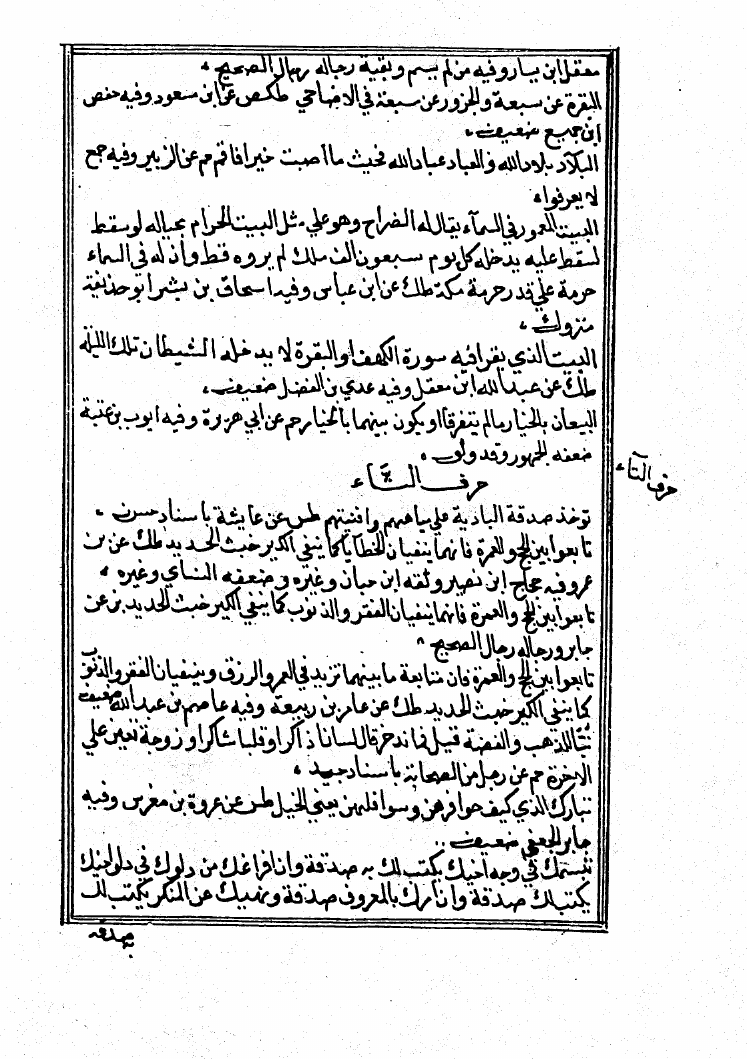 معقل ابن يسار وفيه من لم يسم وبقية رجاله رجال الصحيح
البقرة عن سبعة والجزور عن سبعة في الاضاحي طكص عن ابن مسعود وفيه حفص
ابن جميع ضعيف
البلاد بلاد الله والعباد عباد الله فحيث ما أصبت خيرا فاقم حم عن الزبير وفيه جمع
لا يعرفوا
البيت المعمور في السمآء يقال له الضراح وهو علي مثل البيت الحرام بحياله لو سقط
لسقط عليه يدخله كل يوم سبعون الف ملك لم يروه قط وان له في السماء
حرمة علي قدر حرمة مكة طك عن ابن عباس وفيه اسحاق بن بشر ابو حذيفة
متروك
البيت الذي يقرا فيه سورة الكهف او البقرة لا يدخله الشيطان تلك الليلة
طك عن عبد الله ابن معقل وفيه عدي بن الفضل ضعيف
البيعان بالخيار مالم يتفرقا او يكون بينهما بالخيار حم عن ابي هريرة وفيه ايوب بن عتبة
ضعفه الجمهور وقد وثق
حرف التاء
حرف التآء
توخذ صدقة البادية علي مياههم وافنيتهم طس عن عايشة باسناد حسن
تابعوا بين الحج والعمرة فانهما ينفيان الخطايا كما ينفي الكير خبث الحديد طك عن بن
عمر وفيه حجاج ابن نصير وثقه ابن حبان وغيره وضعفه النساي وغيره
تابعوا بين الحج والعمرة فانهما ينفيان الفقر والذنوب كما ينفي الكير خبث الحديد بز عن
جابر ورجاله رجال الصحيح
تابعوا بين الحج والعمرة فان متابعة ما بينهما تزيد في العمر والرزق وينفيان الفقر والذنوب
كما ينفي الكير خبث الحديد طك عن عامر بن ربيعة وفيه عاصم بن عبد الله ضعيف
تبا للذهب والفضة قيل فما ندخر قال لسانا ذاكرا وقلبا شاكرا وزوجة تعين علي
الاخرة حم عن رجل من الصحابة باسناد جيد
تبارك الذي كيف حوافرهن وسوافلهن يعني الخيل طس عن عروة بن مغرس وفيه
جابر الجعفي ضعيف
تبسمك في وجه اخيك يكتب لك به صدقة وان افراغك من دلوك في دلو اخيك
يكتب لك صدقة وان امرك بالمعروف صدقة ونهيك عن المنكر يكتب لك
به صدقه